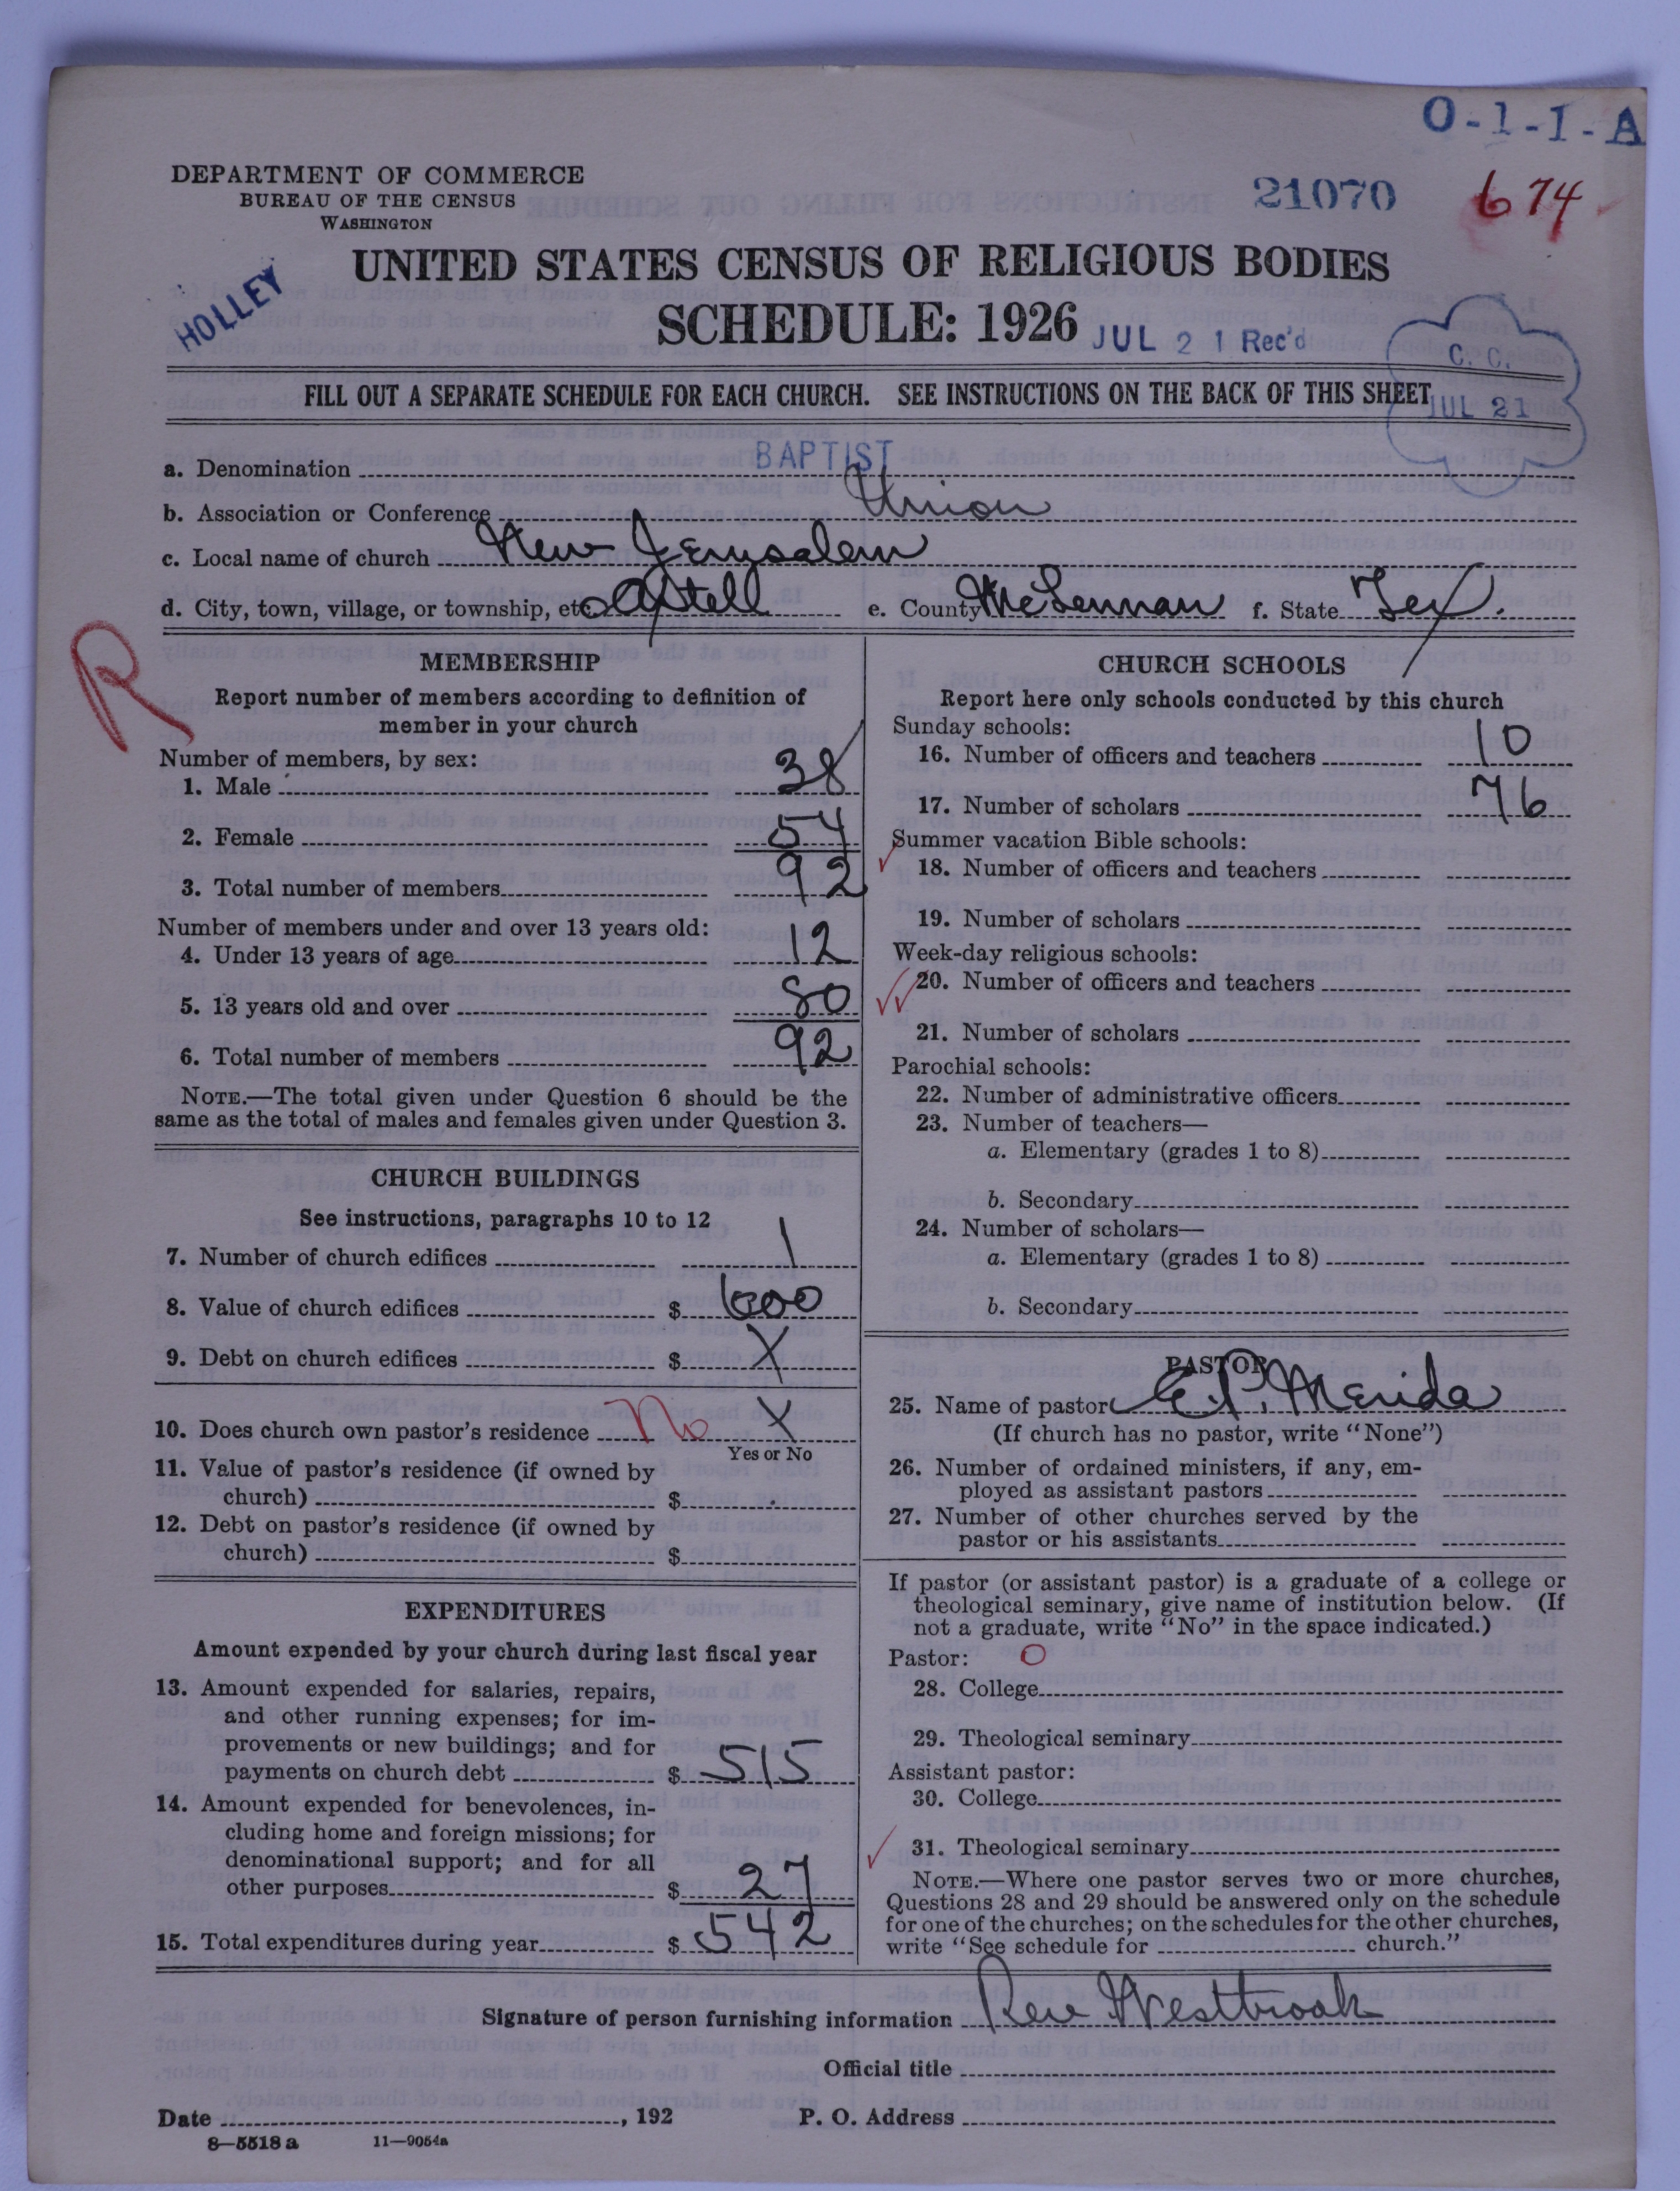 O-1-1-A
DEPARTMENT OF COMMERCE
BUREAU OF THE CENSUS
WASHINGTON
21070 674
UNITED STATES CENSUS OF RELIGIOUS BODIES
HOLLEY
SCHEDULE: 1926
JUL 21 Rec'd
C. C.
JUL 21
FILL OUT A SEPARATE SCHEDULE FOR EACH CHURCH. SEE INSTRUCTIONS ON THE BACK OF THIS SHEET
a. Denomination BAPTIST
b. Association or Conference Union
c. Local name of church New Jerusalem
d. City, town, village, or township, etc. Axtell e. County McLennan f. State Tex.
R
MEMBERSHIP
Report number of members according to definition of
member in your church
Number of members, by sex:
1. Male 38
2. Female 54
3. Total number of members 92
Number of members under and over 13 years old:
4. Under 13 years of age 12
5. 13 years old and over 80
6. Total number of members 92
NOTE.—The total given under Question 6 should be the
same as the total of males and females given under Question 3.
CHURCH BUILDINGS
See instructions, paragraphs 10 to 12
7. Number of church edifices 1
8. Value of church edifices $ 600
9. Debt on church edifices $ X
10. Does church own pastor's residence No X
Yes or No
11. Value of pastor's residence (if owned by
church) $
12. Debt on pastor's residence (if owned by
church) $
EXPENDITURES
Amount expended by your church during last fiscal year
13. Amount expended for salaries, repairs,
and other running expenses; for im-
provements or new buildings; and for
payments on church debt $ 515
14. Amount expended for benevolences, in-
cluding home and foreign missions; for
denominational support; and for all
other purposes $ 27
15. Total expenditures during year $ 542
CHURCH SCHOOLS
Report here only schools conducted by this church
Sunday schools:
16. Number of officers and teachers 10
17. Number of scholars 76
Summer vacation Bible schools:
18. Number of officers and teachers
19. Number of scholars
Week-day religious schools:
20. Number of officers and teachers
21. Number of scholars
Parochial schools:
22. Number of administrative officers
23. Number of teachers—
a. Elementary (grades 1 to 8)
b. Secondary
24. Number of scholars—
a. Elementary (grades 1 to 8)
b. Secondary
PASTOR
25. Name of pastor E. P. Merida
(If church has no pastor, write "None")
26. Number of ordained ministers, if any, em-
ployed as assistant pastors
27. Number of other churches served by the
pastor or his assistants
If pastor (or assistant pastor) is a graduate of a college or
theological seminary, give name of institution below. (If
not a graduate, write "No" in the space indicated.)
Pastor: O
28. College
29. Theological seminary
Assistant pastor:
30. College
31. Theological seminary
NOTE.—Where one pastor serves two or more churches,
Questions 28 and 29 should be answered only on the schedule
for one of the churches; on the schedules for the other churches,
write "See schedule for church."
Signature of person furnishing information Rev Westbrook
Official title
Date , 192 P. O. Address
8—5518 a 11—9054a